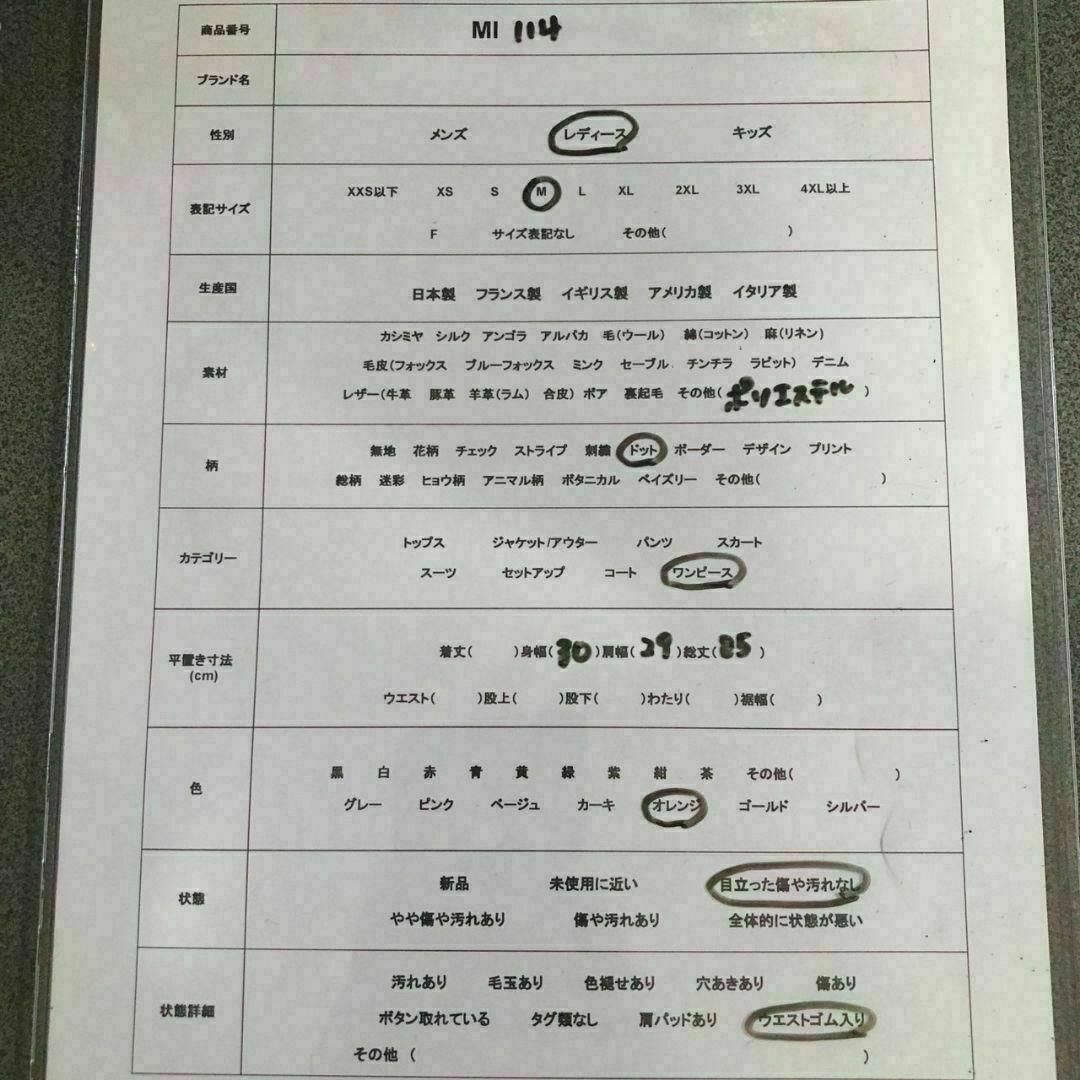 商品番号 MI 114
ブランド名
性別 メンズ レディース キッズ
表記サイズ XXS以下 XS S M L XL 2XL 3XL 4XL以上
F サイズ表記なし その他( )
生産国 日本製 フランス製 イギリス製 アメリカ製 イタリア製
素材 カシミヤ シルク アンゴラ アルパカ 毛(ウール) 綿(コットン) 麻(リネン)
毛皮(フォックス ブルーフォックス ミンク セーブル チンチラ ラビット) デニム
レザー(牛革 豚革 羊革(ラム) 合皮) ボア 裏起毛 その他( ポリエステル )
柄 無地 花柄 チェック ストライプ 刺繍 ドット ボーダー デザイン プリント
総柄 迷彩 ヒョウ柄 アニマル柄 ボタニカル ペイズリー その他( )
カテゴリー トップス ジャケット/アウター パンツ スカート
スーツ セットアップ コート ワンピース
平置き寸法 (cm) 着丈( )身幅( 30 )肩幅( 29 )総丈( 85 )
ウエスト( )股上( )股下( )わたり( )裾幅( )
色 黒 白 赤 青 黄 緑 紫 紺 茶 その他( )
グレー ピンク ベージュ カーキ オレンジ ゴールド シルバー
状態 新品 未使用に近い 目立った傷や汚れなし
やや傷や汚れあり 傷や汚れあり 全体的に状態が悪い
状態詳細 汚れあり 毛玉あり 色褪せあり 穴あきあり 傷あり
ボタン取れている タグ類なし 肩パッドあり ウエストゴム入り
その他 ( )